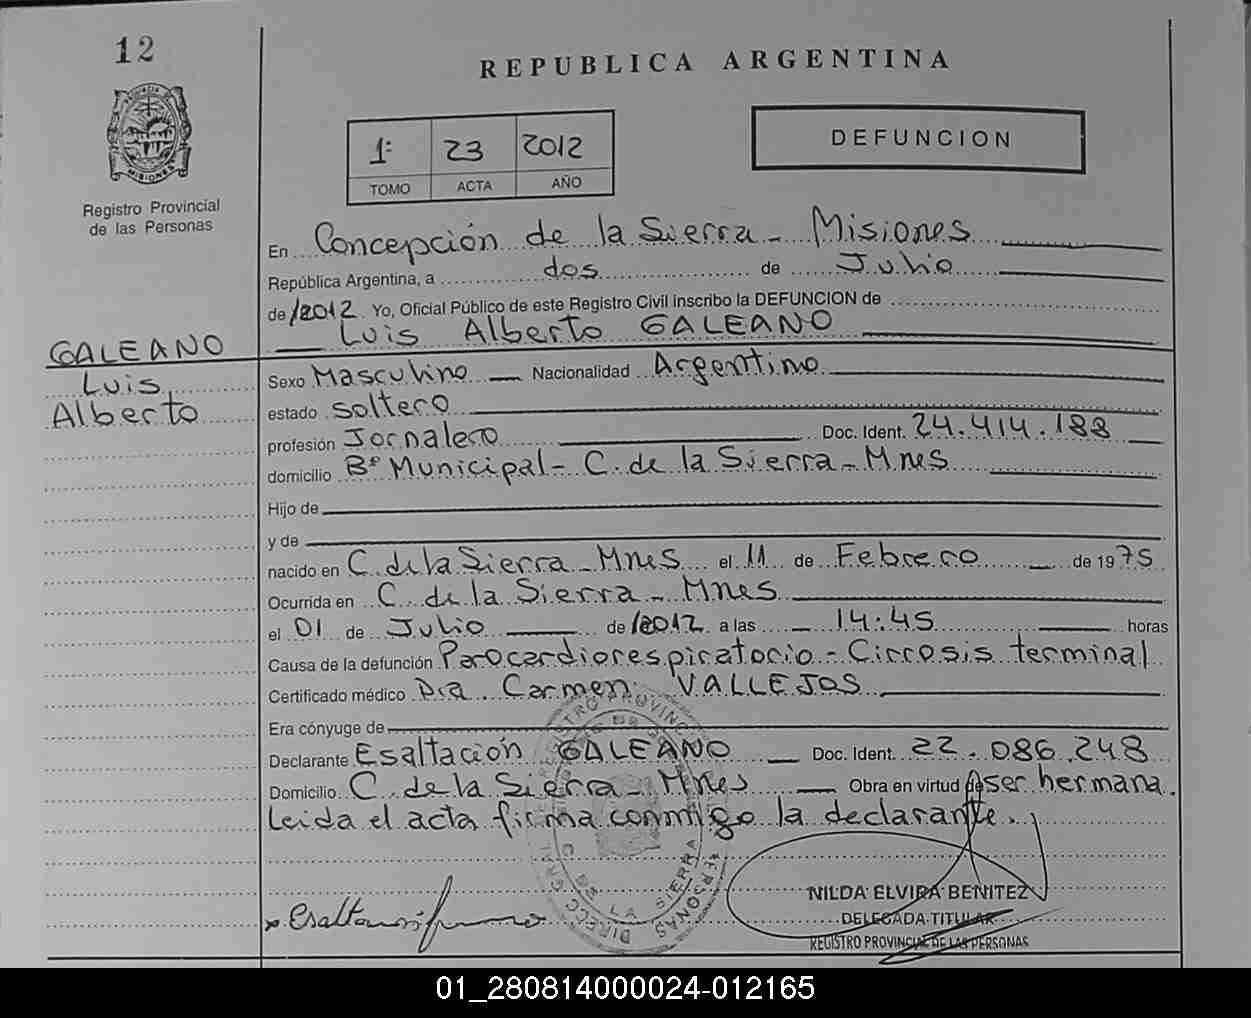 12
REPUBLICA ARGENTINA
PROVINCIA DE
MISIONES
Registro Provincial
de las Personas
1º 23 2012
TOMO ACTA AÑO
DEFUNCION
En Concepción de la Sierra - Misiones
República Argentina, a dos de Julio
de /2012 Yo, Oficial Público de este Registro Civil inscribo la DEFUNCION de
Luis Alberto GALEANO
GALEANO
Luis
Alberto
Sexo Masculino Nacionalidad Argentino
estado Soltero
profesión Jornalero Doc. Ident. 24.414.188
domicilio Bº Municipal - C. de la Sierra - Mnes
Hijo de
y de
nacido en C. de la Sierra - Mnes el 11 de Febrero de 1975
Ocurrida en C. de la Sierra - Mnes
el 01 de Julio de /2012 a las 14:45 horas
Causa de la defunción Parocardiorespiratorio - Cirrosis terminal
Certificado médico Dra. Carmen VALLEJOS
Era cónyuge de
Declarante Esaltación GALEANO Doc. Ident. 22.086.248
Domicilio C. de la Sierra - Mnes Obra en virtud de ser hermana.
Leida el acta firma conmigo la declarante.
NILDA ELVIRA BENITEZ
DELEGADA TITULAR
REGISTRO PROVINCIAL DE LAS PERSONAS
01_280814000024-012165